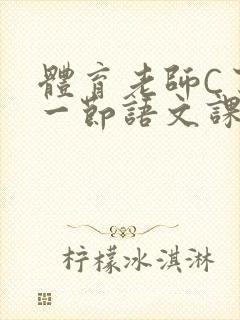 體育老師C
一節語文課
柠檬冰淇淋